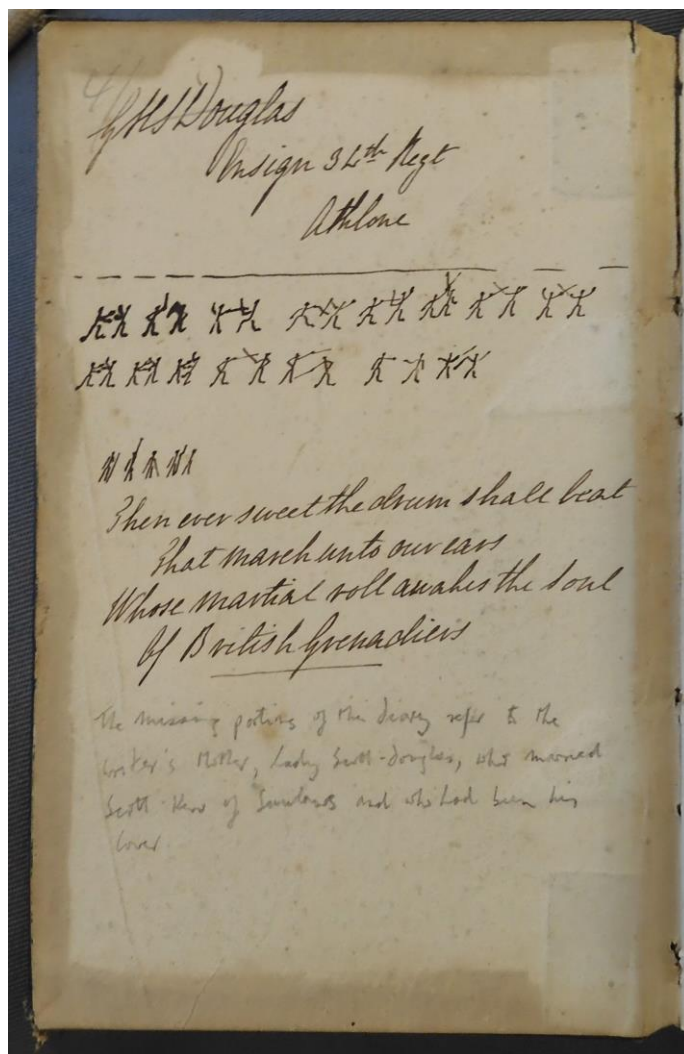 GHS Douglas
Ensign 34th Regt
Athlone
Then ever sweet the drum shall beat
That march unto our ears
Whose martial roll awakes the soul
Of British Grenadiers
The missing portions of the diary refer to the
writer's Mother, Lady Scott-Douglas, who married
Scott Kerr of Sunlaws and who had been his
lover